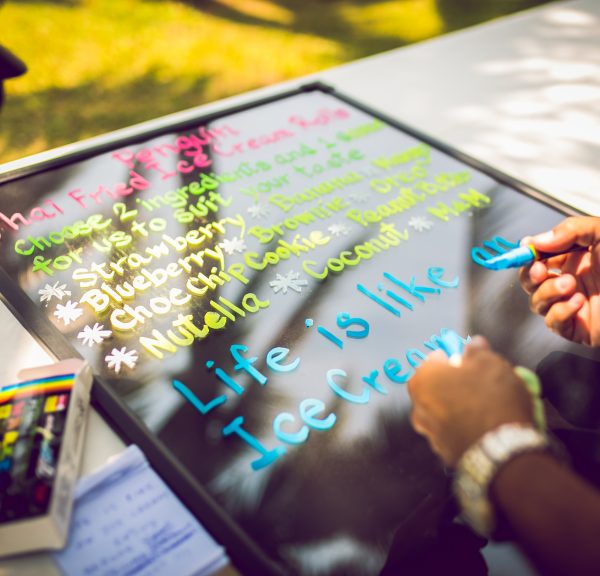 Penguin
Thai Fried Ice Cream Rolls
Choose 2 ingredients and 1
for us to suit your taste
* Strawberry * Banana * Mango
* Blueberry * Brownie * Oreo
* Choc chip Cookie * Peanut Butter
* Nutella * Coconut * M&M
Life is like an
Ice Cream